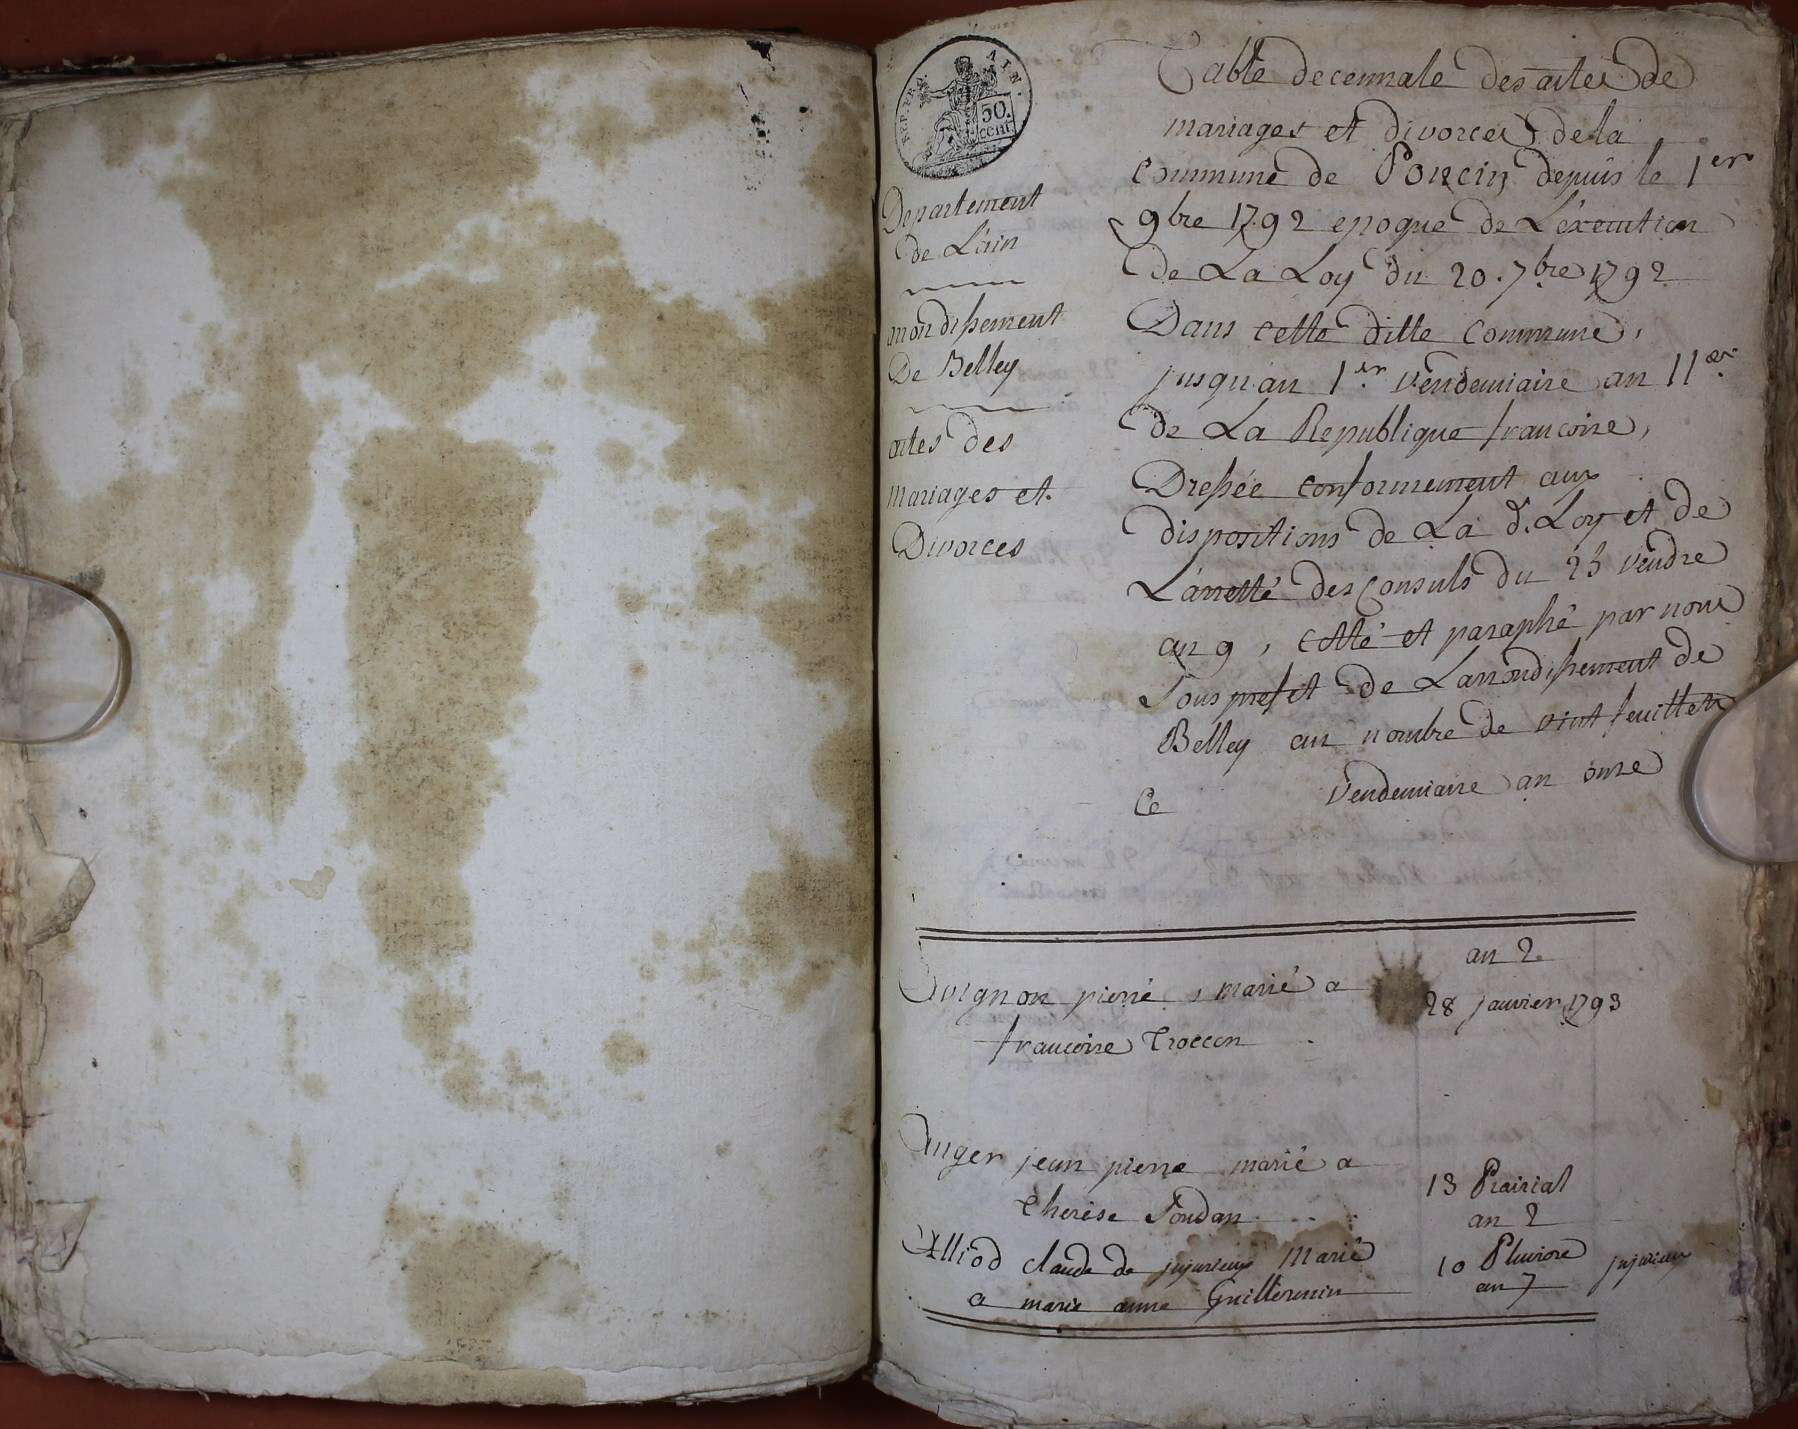 REP. FRA. AIN.
50. cent.
Departement
de L'ain
arrondissement
De Belley
actes des
mariages et
Divorces
Table decennale des actes de
mariages et divorces de la
Commune de Poncin depuis le 1er
9bre 1792 epoque de L'éxecution
de La Loy du 20. 7bre 1792
Dans cette ditte Commune,
jusqu'au 1er Vendemiaire an 11e
de La Republique francoise,
Dressée conformement aux
dispositions de La d. Loy et de
L'arretté des Consuls du 25 vendre
an 9, cotté et paraphé par nous
Sous prefet de L'arrondissement de
Belley au nombre de vint feuillets
Ce Vendemiaire an onze
an 2
Avignon pierre, marié a 28 janvier 1793
francoise Troccon
Auger jean pierre marié a 13 Prairial
therese Soudan an 2
Alliod claude de jujurieux Marié 10 Pluviose jujurieux
a marie anne Guillermin an 7